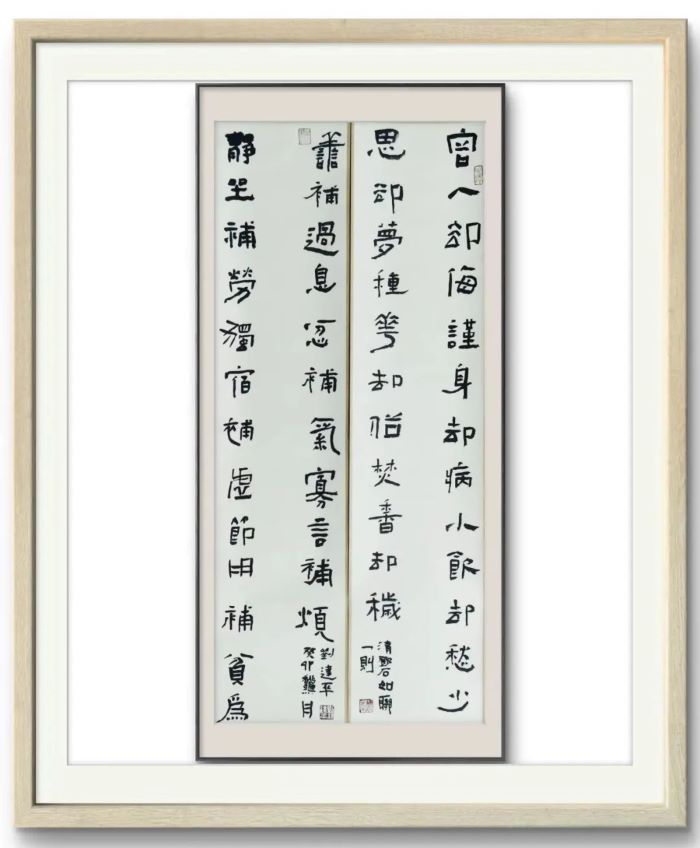 容人却侮謹身却病小飲却愁少
思却夢種華却俗焚香却穢
清鄧石如聯
一則
静坐補勞獨宿補虛節用補貧爲
譱補過息忿補氣寡言補煩
癸卯臘月
劉達平